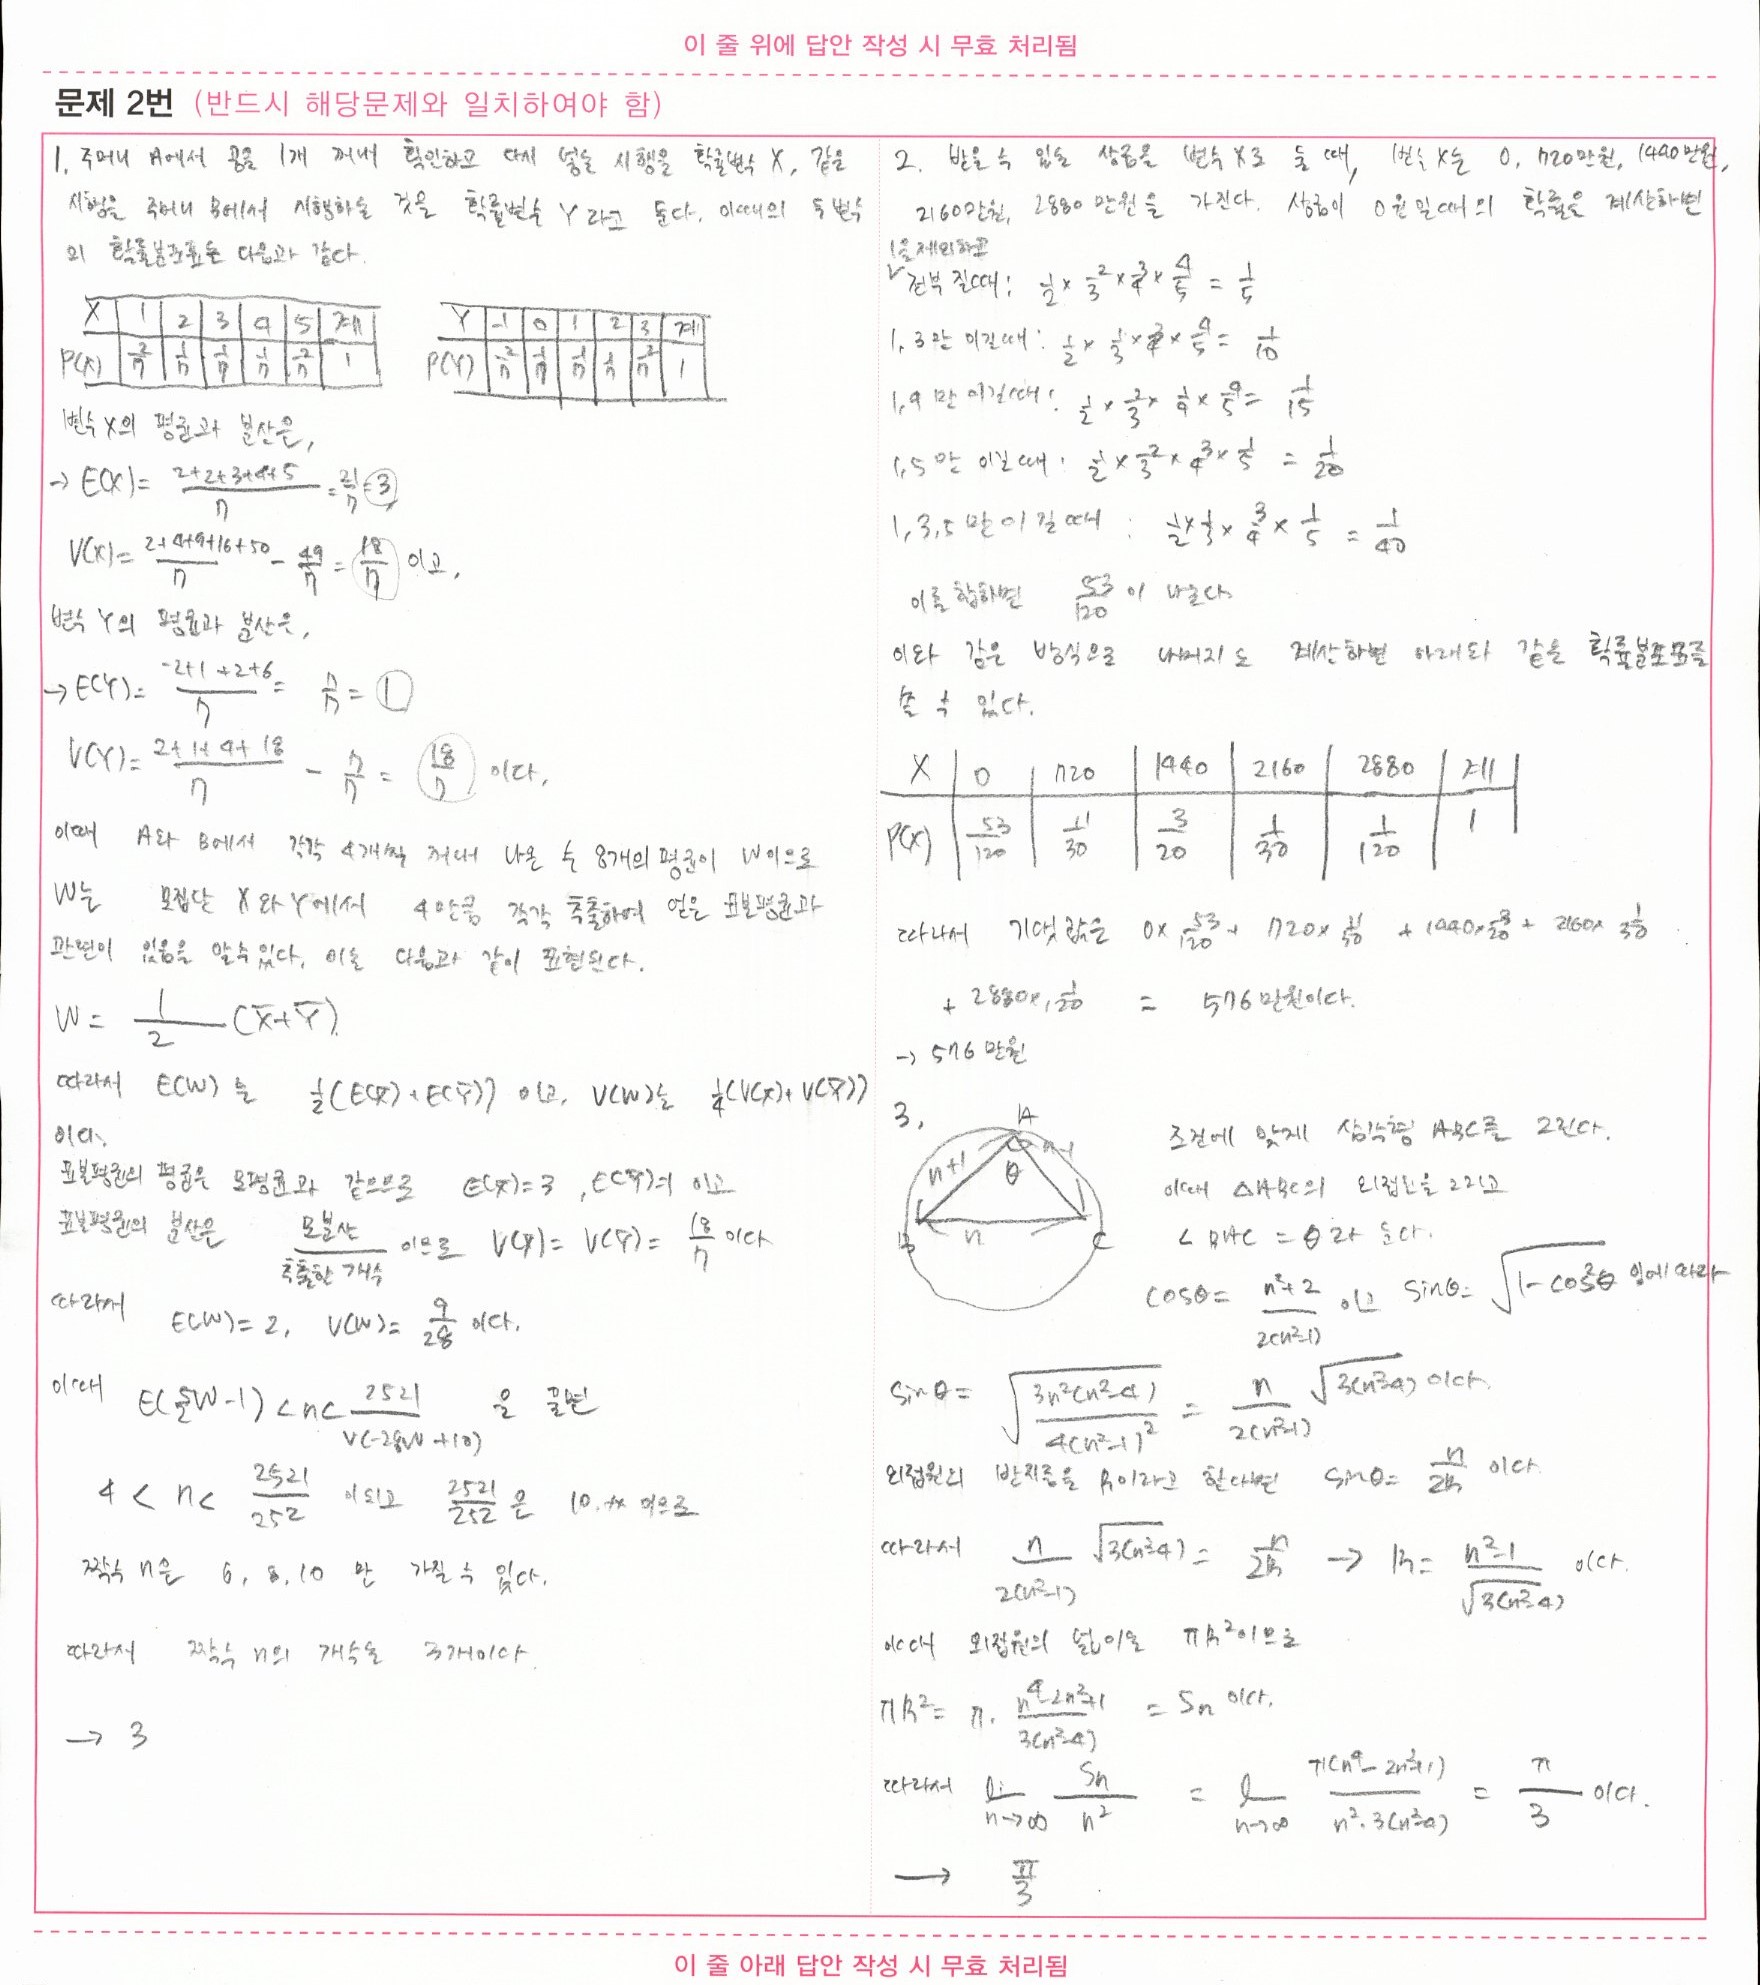 이 줄 위에 답안 작성 시 무효 처리됨
문제 2번 (반드시 해당문제와 일치하여야 함)
1. 주머니 A에서 공을 1개 꺼내 확인하고 다시 넣는 시행을 확률변수 X, 같은
시행을 주머니 B에서 시행하는 것을 확률변수 Y라고 둔다. 이때의 두 변수
의 확률분포표는 다음과 같다.
X 1 2 3 4 5 계
P(X) 2/7 1/7 1/7 1/7 2/7 1
Y -1 0 1 2 3 계
P(Y) 2/7 1/7 1/7 1/7 2/7 1
변수 X의 평균과 분산은,
→ E(X) = (2+2+3+4+5)/7 = 21/7 = 3
V(X) = (2+4+9+16+50)/7 - 49/7 = 18/7 이고,
변수 Y의 평균과 분산은,
→ E(Y) = (-2+1+2+6)/7 = 7/7 = 1
V(Y) = (2+1+4+18)/7 - 7/7 = 18/7 이다.
이때 A와 B에서 각각 4개씩 꺼내 나온 수 8개의 평균이 W이므로
W는 모집단 X와 Y에서 4만큼 각각 추출하여 얻은 표본평균과
관련이 있음을 알수있다. 이는 다음과 같이 표현된다.
W = 1/2 (X̄+Ȳ).
따라서 E(W)는 1/2(E(X̄)+E(Ȳ)) 이고, V(W)는 1/4(V(X̄)+V(Ȳ))
이다.
표본평균의 평균은 모평균과 같으므로 E(X̄)=3, E(Ȳ)=1 이고
표본평균의 분산은 모분산/추출한 개수 이므로 V(X̄) = V(Ȳ) = 18/7 이다
따라서 E(W)=2, V(W)= 9/28 이다.
이때 E(5/2W-1) < n < 2521/V(-28W+10) 을 풀면
4 < n < 2521/252 이 되고 2521/252 은 10.xx 이므로
짝수 n은 6, 8, 10 만 가질 수 있다.
따라서 짝수 n의 개수는 3개이다.
→ 3
2. 받을 수 있는 상금을 변수 X로 둘 때, 변수 X는 0, 720만원, 1440만원,
2160만원, 2880만원을 가진다. 상금이 0원일때의 확률을 계산하면
1을 제외하고
전부 질때: 1/2 × 2/3 × 3/4 × 4/5 = 1/5
1, 3만 이길때: 1/2 × 1/3 × 3/4 × 4/5 = 1/10
1, 4만 이길때: 1/2 × 2/3 × 1/4 × 4/5 = 1/15
1, 5만 이길때: 1/2 × 2/3 × 3/4 × 1/5 = 1/20
1, 3, 5만 이길때: 1/2 × 1/3 × 3/4 × 1/5 = 1/40
이를 합하면 53/120 이 나온다.
이와 같은 방식으로 나머지도 계산하면 아래와 같은 확률분포표를
쓸 수 있다.
X 0 720 1440 2160 2880 계
P(X) 53/120 11/30 3/20 1/30 1/120 1
따라서 기댓값은 0×53/120 + 720×11/30 + 1440×3/20 + 2160×1/30
+ 2880×1/120 = 576만원이다.
→ 576만원
3.
A
n+1 n-1
θ
n
B C
조건에 맞게 삼각형 ABC를 그린다.
이때 △ABC의 외접원을 그리고
∠BAC = θ라 둔다.
cosθ = (n²+2)/2(n²-1) 이고 sinθ = √(1-cos²θ) 임에 따라
sinθ = √(3n²(n²-4)/4(n²-1)²) = n/2(n²-1) √3(n²-4) 이다.
외접원의 반지름을 R이라고 한다면 sinθ = n/2R 이다.
따라서 n/2(n²-1) √3(n²-4) = n/2R → R = (n²-1)/√3(n²-4) 이다.
이때 외접원의 넓이는 πR²이므로
πR² = π · (n⁴-2n²+1)/3(n²-4) = Sn 이다.
따라서 lim n→∞ Sn/n² = lim n→∞ π(n⁴-2n²+1)/n²·3(n²-4) = π/3 이다.
→ π/3
이 줄 아래 답안 작성 시 무효 처리됨